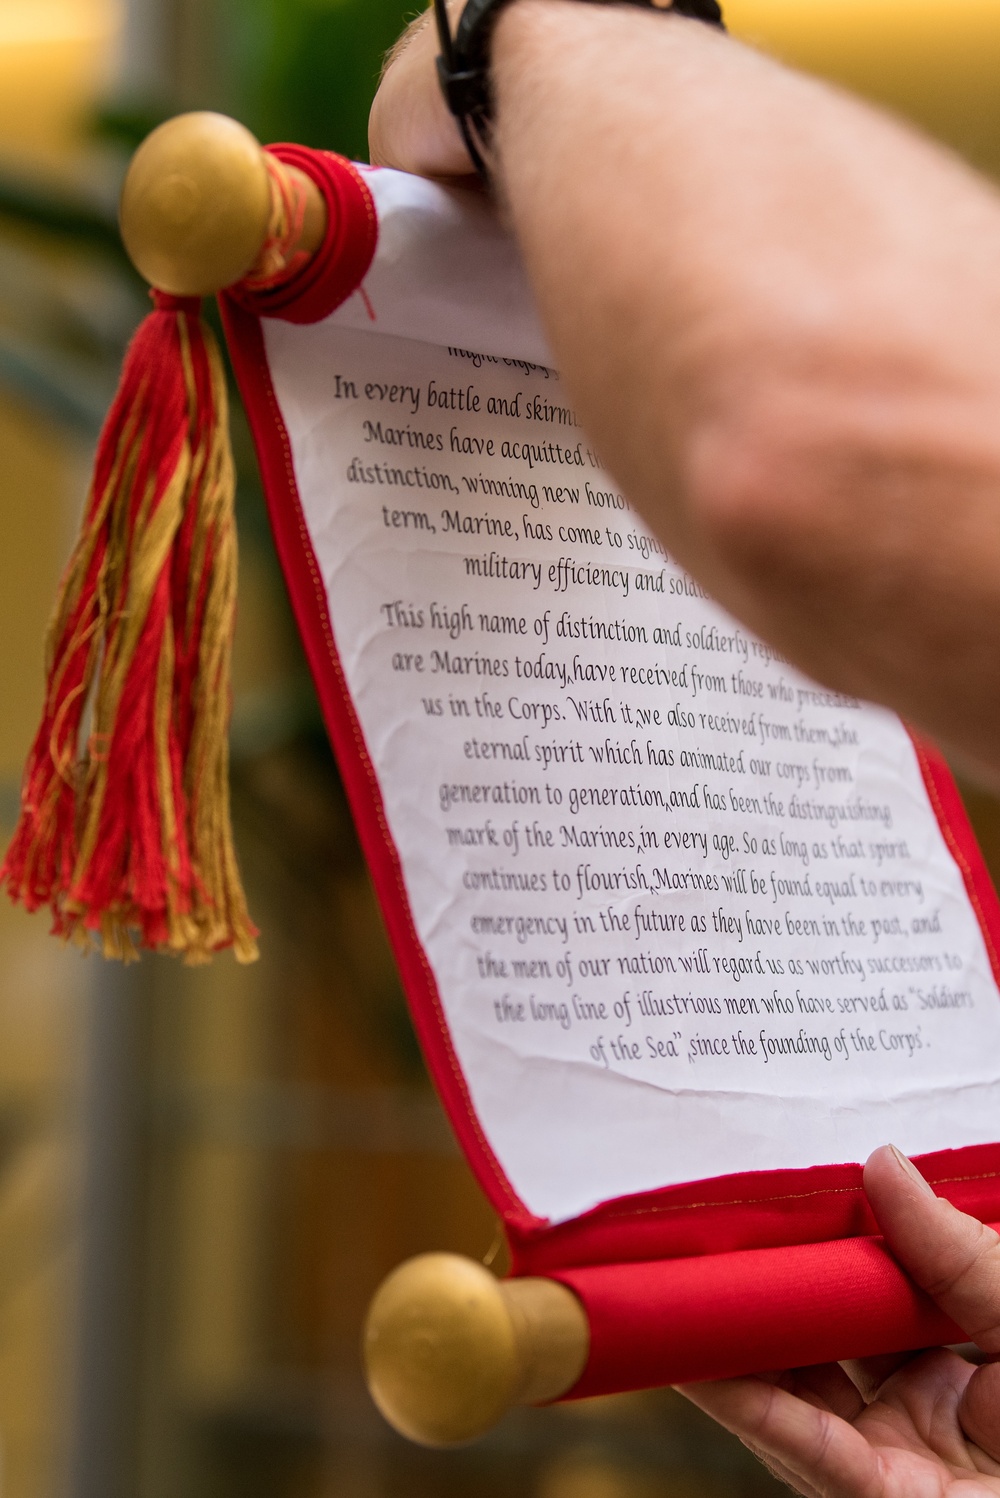 might enjoy
In every battle and skirm
Marines have acquitted t
distinction, winning new honor
term, Marine, has come to signify
military efficiency and soldie
This high name of distinction and soldierly repu
are Marines today, have received from those who preceded
us in the Corps. With it, we also received from them, the
eternal spirit which has animated our corps from
generation to generation, and has been the distinguishing
mark of the Marines, in every age. So as long as that spirit
continues to flourish, Marines will be found equal to every
emergency in the future as they have been in the past, and
the men of our nation will regard us as worthy successors to
the long line of illustrious men who have served as "Soldiers
of the Sea", since the founding of the Corps'.